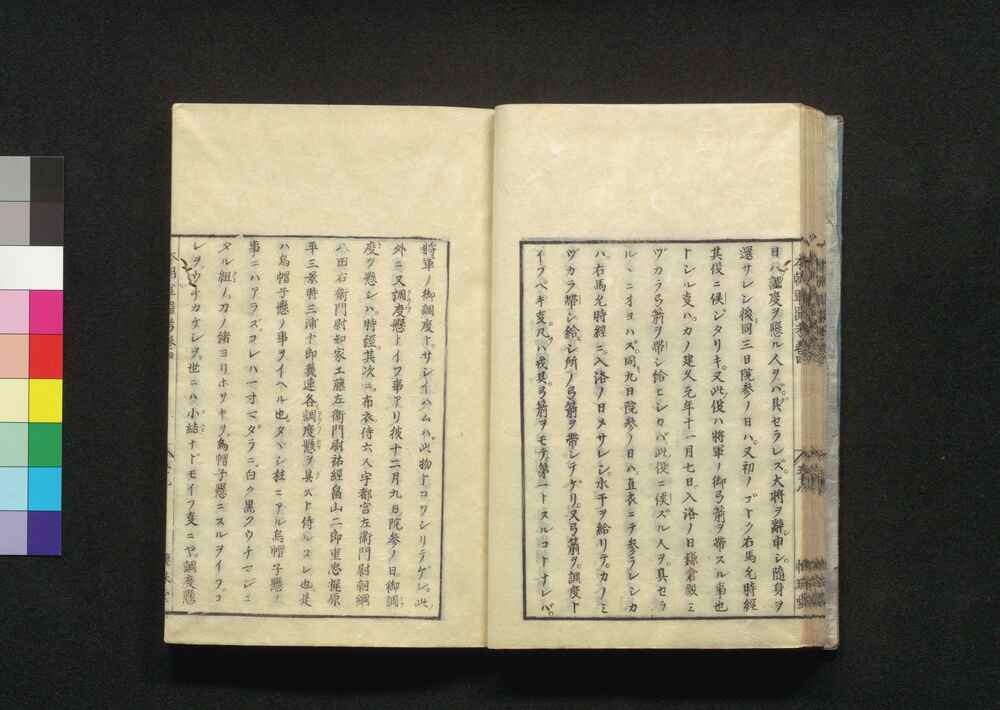 日ハ調度ヲ懸ル人ヲバ具セラレズ大将ヲ辞申シ随身ヲ
還サレシ後同三日院参ノ日ハ又初ノゴトク右馬允時経
其役ニ候ジタリキ又此役ハ将軍ノ御弓箭ヲ帯スル事也
トシル支ハカノ建久元年十一月七日入洛ノ日鎌倉殿ミ
ヅカラ弓箭ヲ帯シ給ヒシカバ此役ニ候ズル人ヲ具セラ
ルヽニオヨハズ同九日院参ノ日ハ直衣ニテ参ラレシカ
ハ右馬允時経ニ入洛ノ日メサレシ水干ヲ給リテカノミ
ヅカラ帯シ給ヒシ所ノ弓箭ヲ帯シテゲリ又弓箭ヲ調度ト
イフベキ支ハ戎具弓箭ヲモテ第一トスルコトナレバ
将軍ノ御調度トサシイハムハ此物トコソシリテゲレ此
外ニ又調度懸トイフ事アリ按十二月九日院参ノ日御調
度ヲ懸シハ時経其次ニ布衣侍六人宇都宮左衛門尉朝綱
八田右衛門尉知家工藤左衛門尉祐経畠山二郎重忠梶原
平三景時三浦十郎義連各調度懸ヲ具ストト侍ルコレ也是
ハ烏帽子懸ノ事ヲイヘル也タヾシ柱ニアル烏帽子懸ノ
事ニハアラズコレハ一寸マダラニ白ク黒クウチマジニ
タル紐ノ刀ノ緒ヨリホソキヲ烏帽子懸ニスルヲイフコ
レヲウチカケレヲ世ニハ小結ナドモイフ支ニヤ調度懸